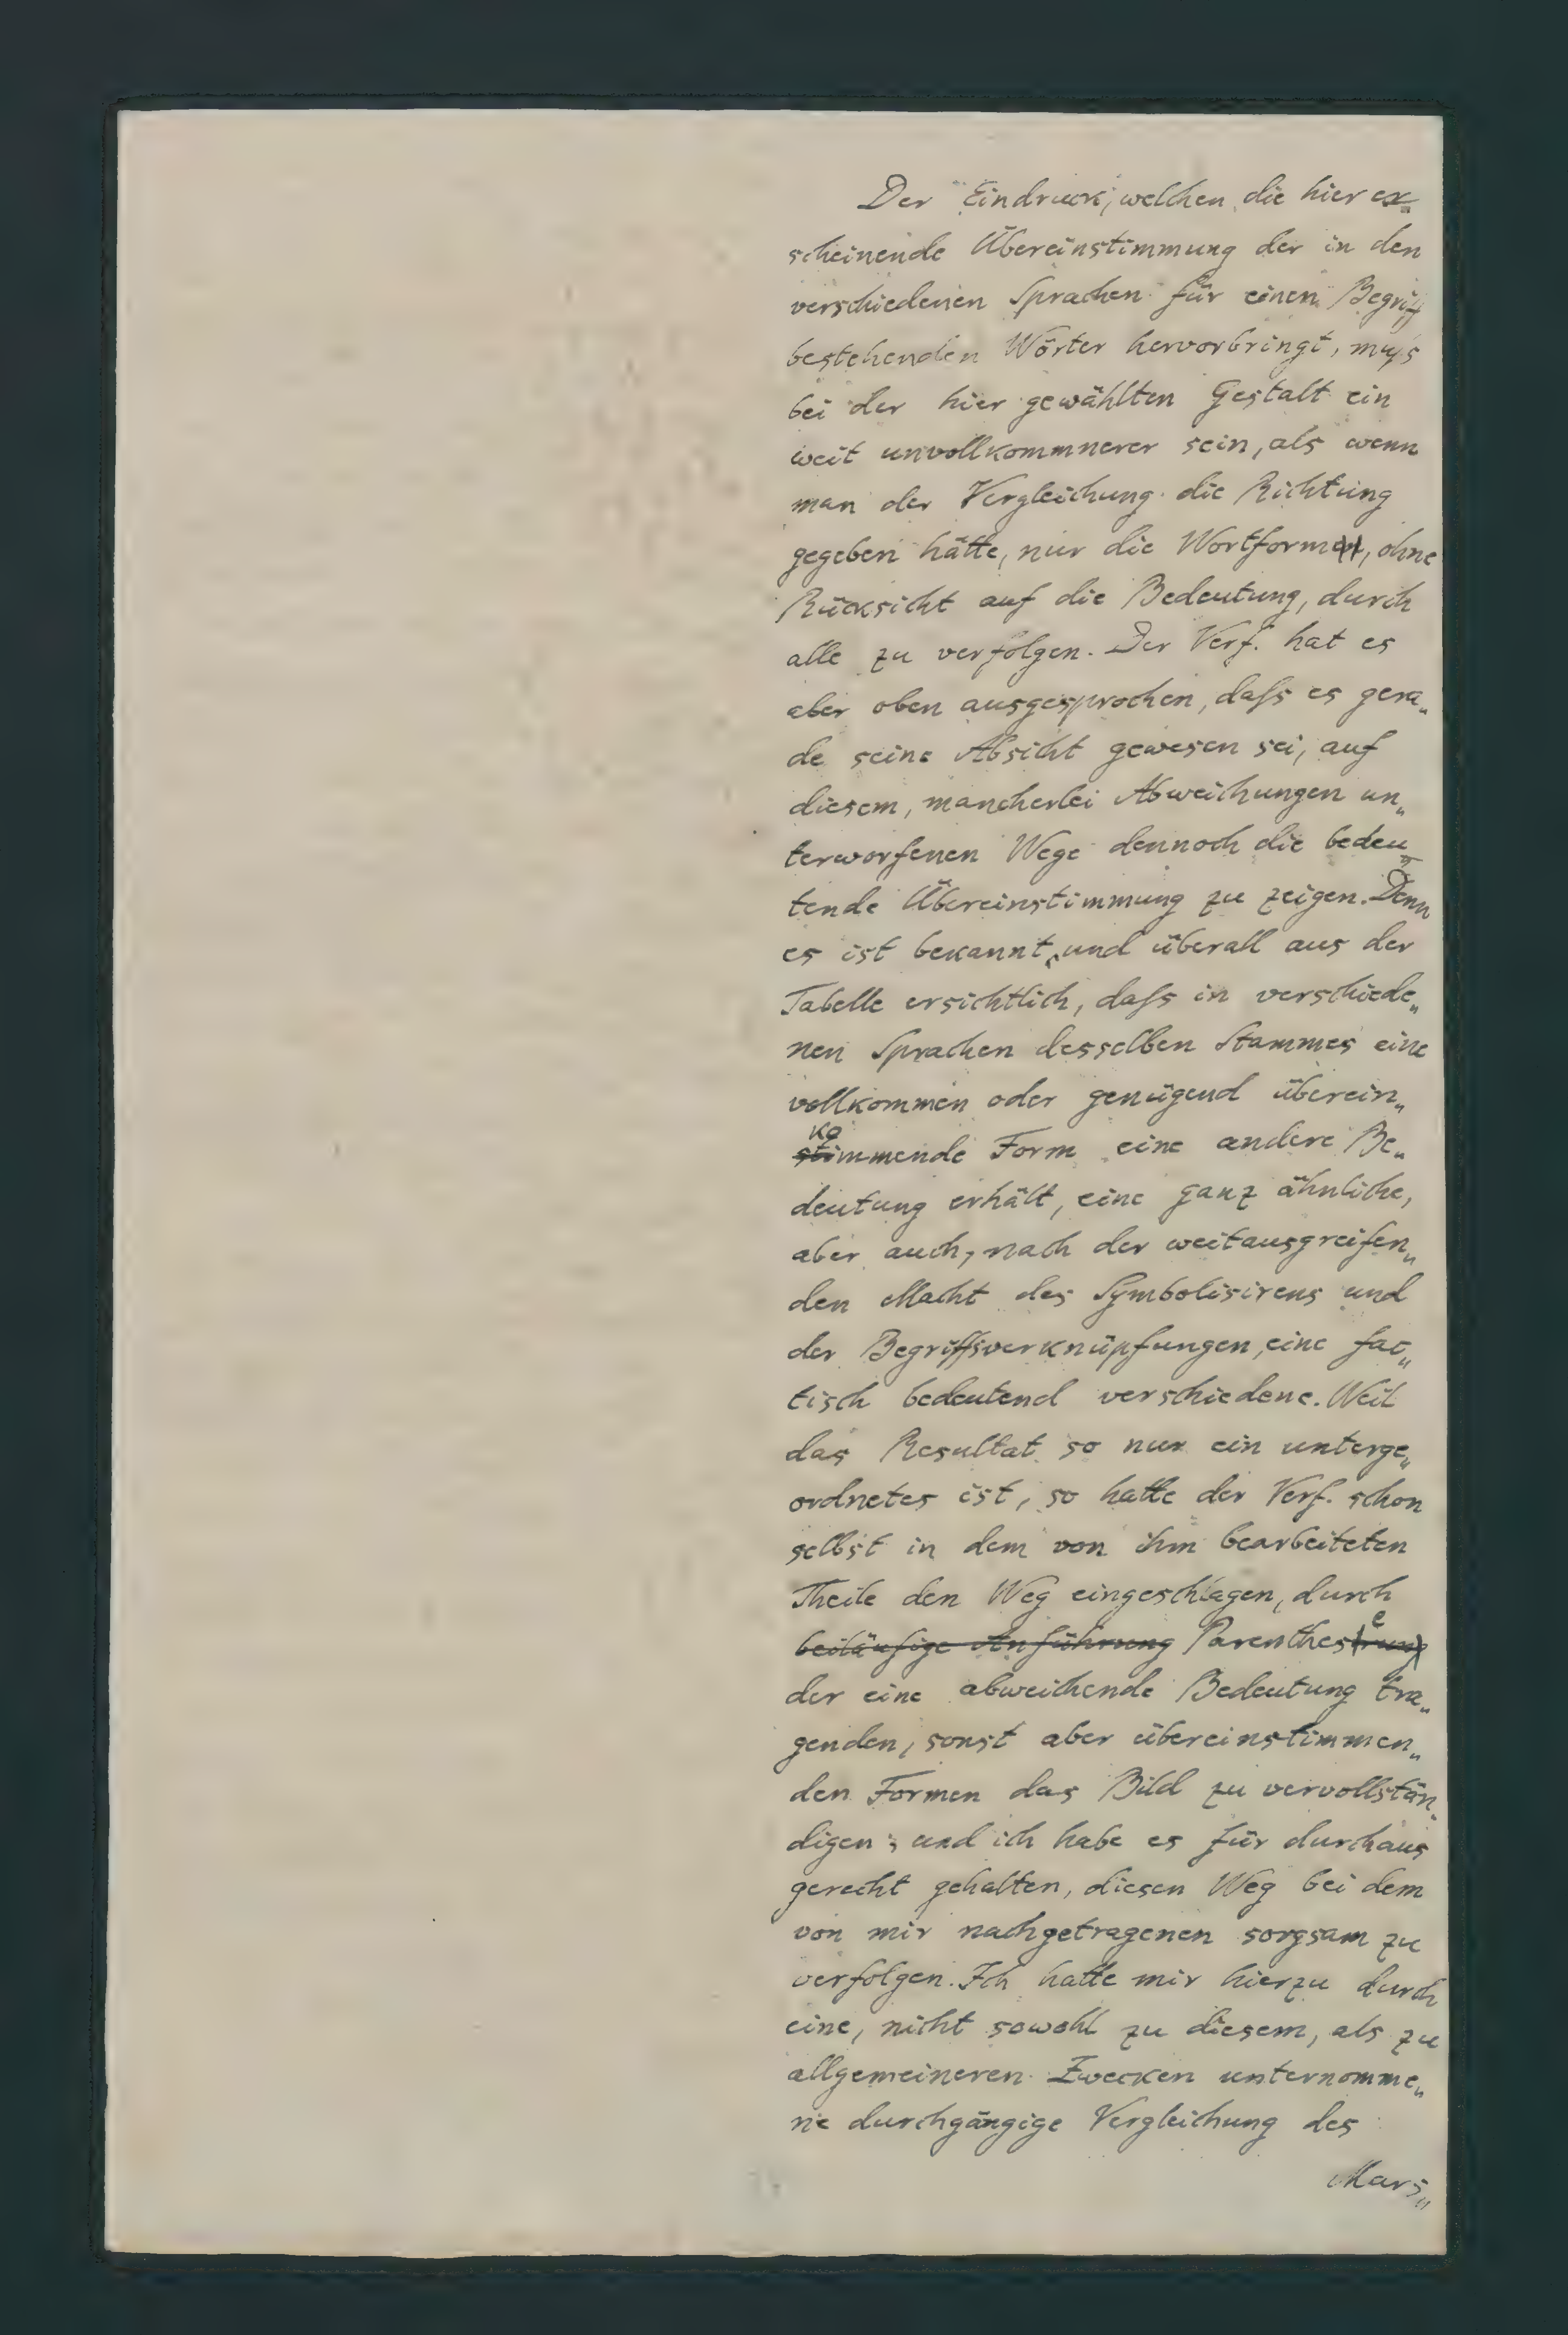 Der Eindruck, welchen die hier er-
scheinende Übereinstimmung der in den
verschiedenen Sprachen für einen Begriff
bestehenden Wörter hervorbringt, muſs
bei der hier gewählten Gestalt ein
weit unvollkommnerer sein, als wenn
man der Vergleichung die Richtung
gegeben hätte, nur die Wortform, ohne
Rücksicht auf die Bedeutung, durch
alle zu verfolgen. Der Verf. hat es
aber oben ausgesprochen, daſs es gera„
de seine Absicht gewesen sei, auf
diesem, mancherlei Abweichungen un„
terworfenen Wege dennoch die bedeu„
tende Übereinstimmung zu zeigen. Denn
es ist bekannt, und überall aus der
Tabelle ersichtlich, daſs in verschiede„
nen Sprachen desselben Stammes eine
vollkommen oder genügend überein„
kommende Form eine andere Be„
deutung erhält, eine ganz ähnliche,
aber auch, nach der weitausgreifen„
den Macht des Symbolisirens und
der Begriffsverknüpfungen, eine fac„
tisch bedeutend verschiedene. Weil
das Resultat so nur ein unterge„
ordnetes ist, so hatte der Verf. schon
selbst in dem von ihm bearbeiteten
Theile den Weg eingeschlagen, durch
beiläufige Anführung Parenthese
der eine abweichende Bedeutung tra„
genden, sonst aber übereinstimmen„
den Formen das Bild zu vervollstän„
digen; und ich habe es für durchaus
gerecht gehalten, diesen Weg bei dem
von mir nachgetragenen sorgsam zu
verfolgen. Ich hatte mir hierzu durch
eine, nicht sowohl zu diesem, als zu
allgemeineren Zwecken unternomme„
ne durchgängige Vergleichung des
Mars„